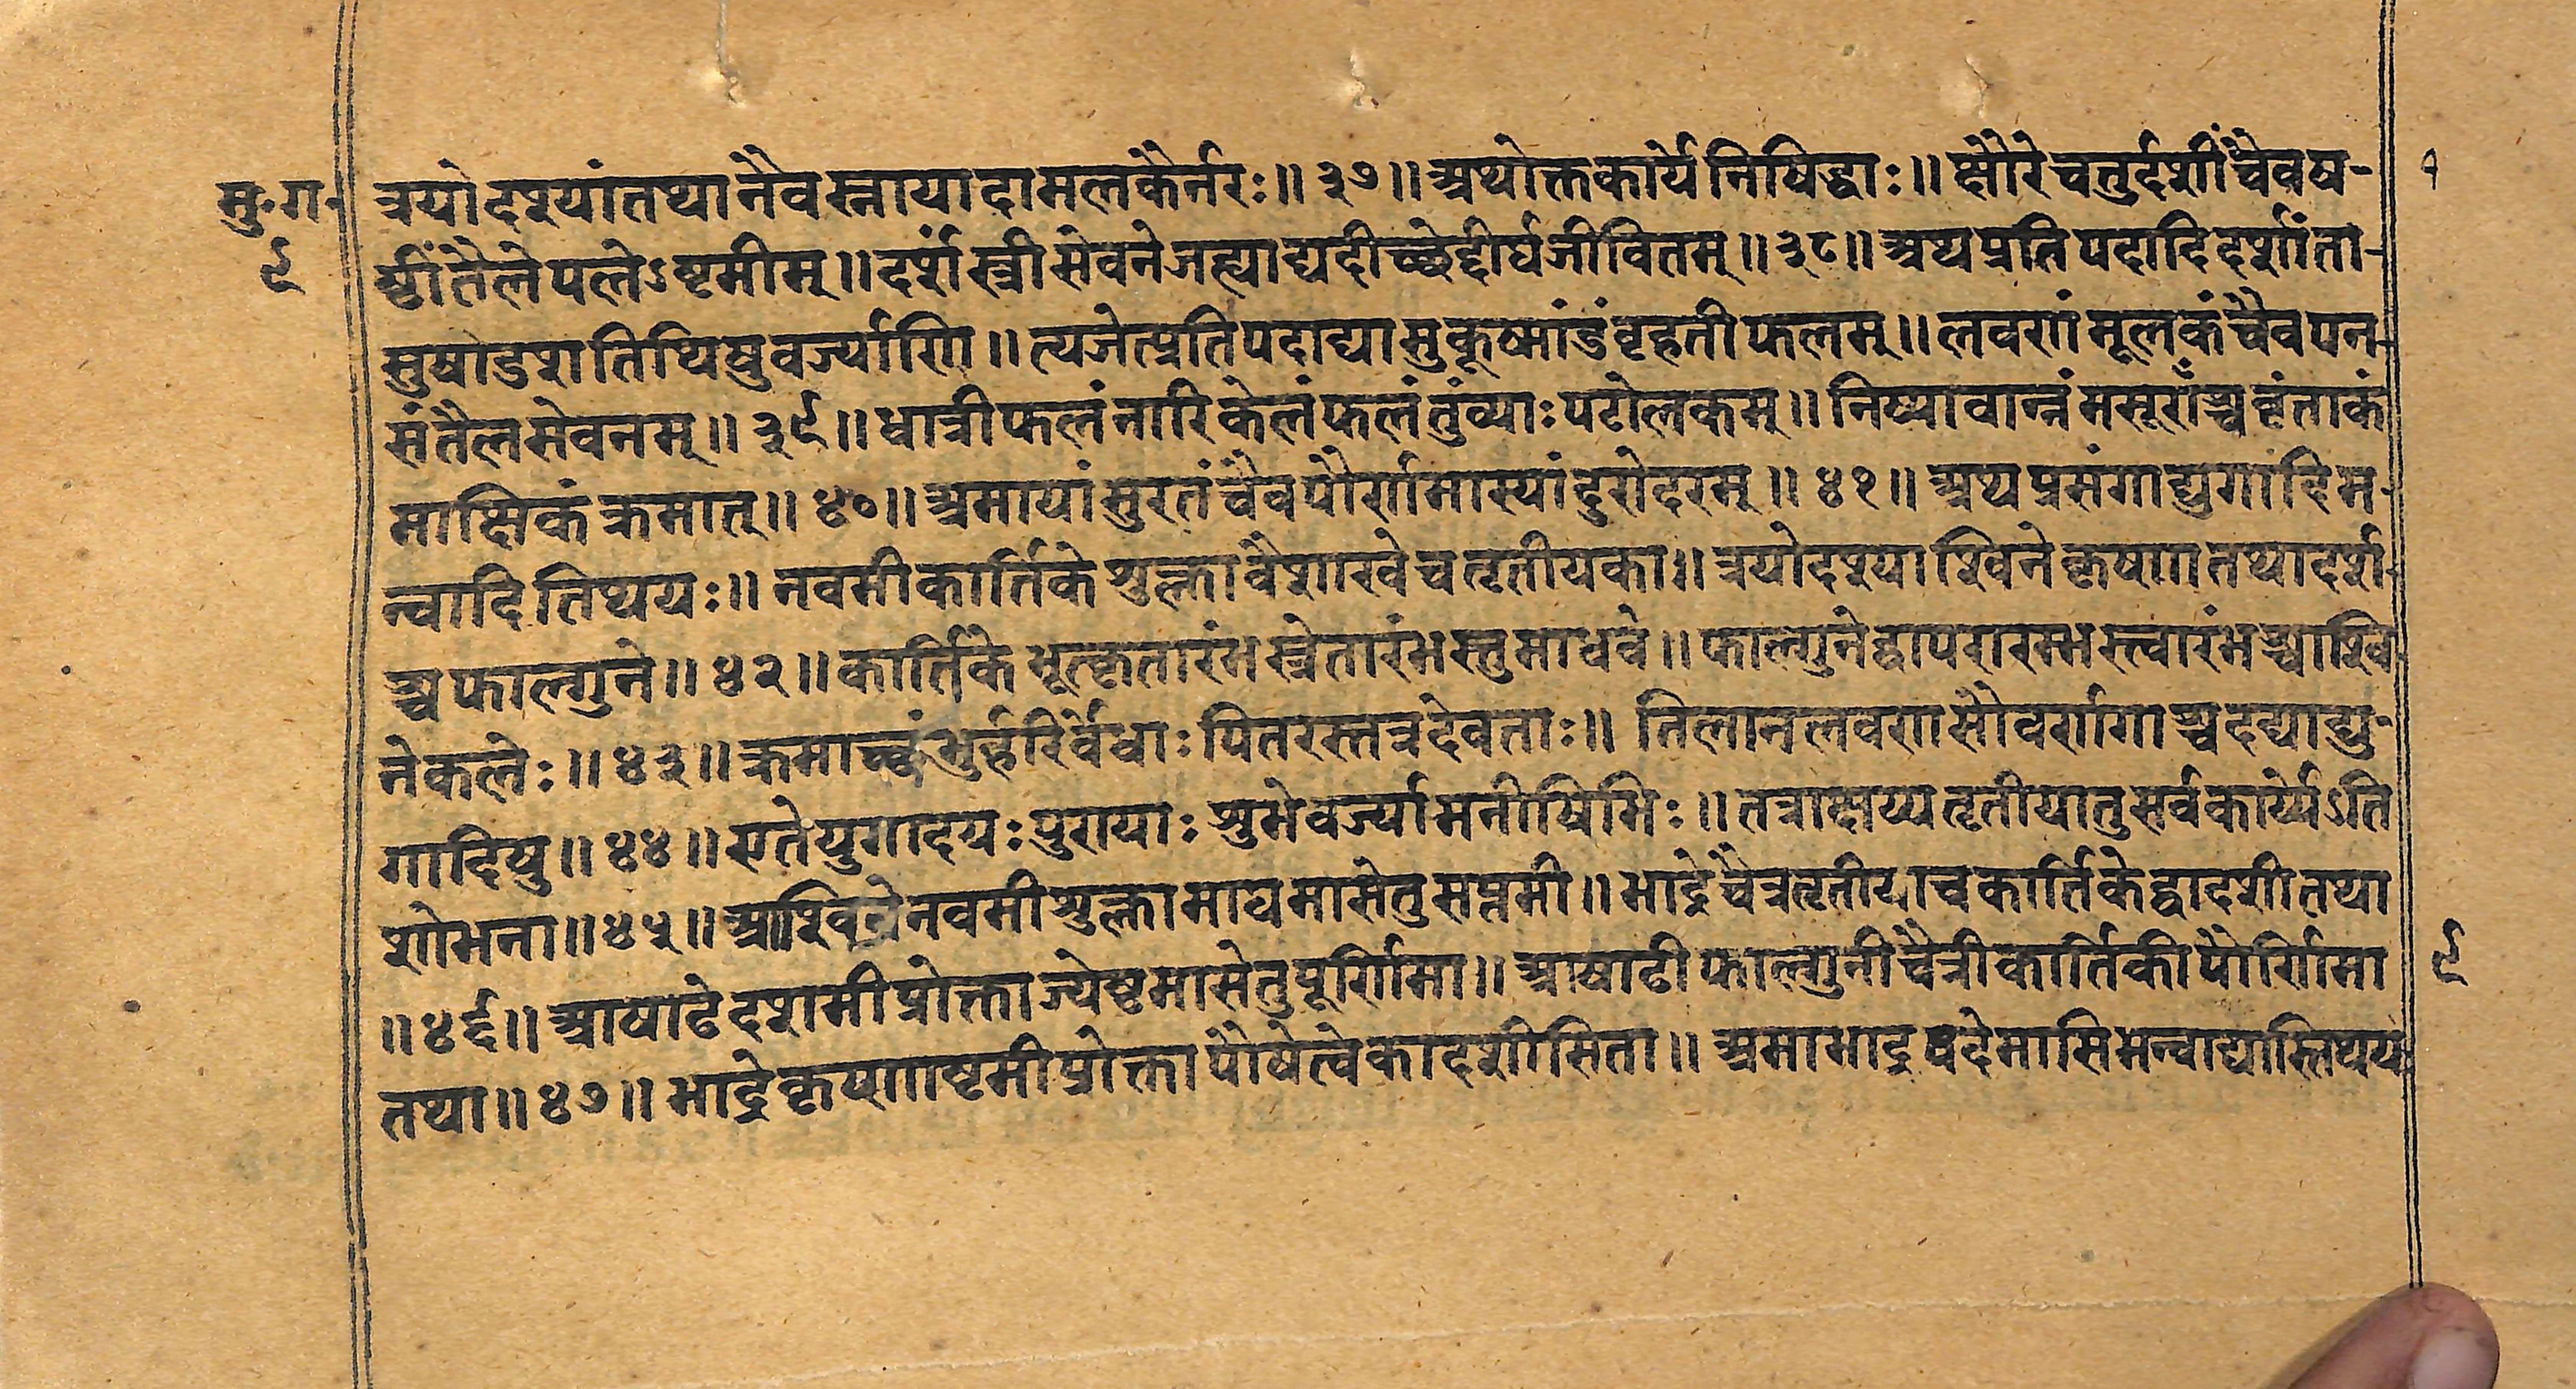 मु॰ग॰ त्रयोदश्यांतथानैवस्नायादामलकैर्नरः॥३७॥अथोक्तकार्येनिषिद्धाः॥क्षौरेचतुर्दशींचैवष- १
९ ष्ठींतैलेपलेऽष्टमीम्॥दर्शंस्त्रीसेवनेजह्याद्यदीच्छेद्दीर्घजीवितम्॥३८॥अथप्रतिपदादिदर्शांता-
सुषोडशतिथिषुवर्ज्याणि॥त्यजेत्प्रतिपदाद्यासुकूष्मांडंबृहतीफलम्॥लवणंमूलकंचैवपन-
संतैलसेवनम्॥३९॥धात्रीफलंनारिकेलंफलंतुंव्याःपटोलकम्॥निष्पावान्नंमसूराँश्चवृंताकं
माक्षिकंक्रमात्॥४०॥अमायांसुरतंचैवपौर्णमास्यांदुरोदरम्॥४१॥अथप्रसंगाद्युगादिम-
न्वादितिथयः॥नवमीकार्तिकेशुक्लावैशाखेचतृतीयका॥त्रयोदश्याश्विनेकृष्णातथादर्श-
श्चफाल्गुने॥४२॥कार्तिकेभूत्कृतारंभस्त्रेतारंभस्तुमाधवे॥फाल्गुनेद्वापरारम्भस्त्वारंभश्चाश्वि-
नेकलेः॥४३॥क्रमाच्छंभुर्हरिर्वेधाःपितरस्तत्रदेवताः॥तिलानलवणसौवर्णगाश्चदद्याद्यु-
गादिषु॥४४॥एतेयुगादयःपुण्याःशुभेवर्ज्यामनीषिभिः॥तत्राक्षय्यतृतीयातुसर्वकार्य्येऽति
शोभना॥४५॥आश्विनेनवमीशुक्लामाघमासेतुसप्तमी॥भाद्रेचैत्रतृतीयाचकार्तिकेद्वादशीतथा
॥४६॥आषाढेदशमीप्रोक्ताज्येष्ठमासेतुपूर्णिमा॥आषाढीफाल्गुनीचैत्रीकार्तिकीपौर्णिमा ९
तथा॥४७॥भाद्रेकृष्णाष्टमीप्रोक्तापौषेत्वेकादशीसिता॥अमाभाद्रपदेमासिमन्वाद्यास्तिथयः